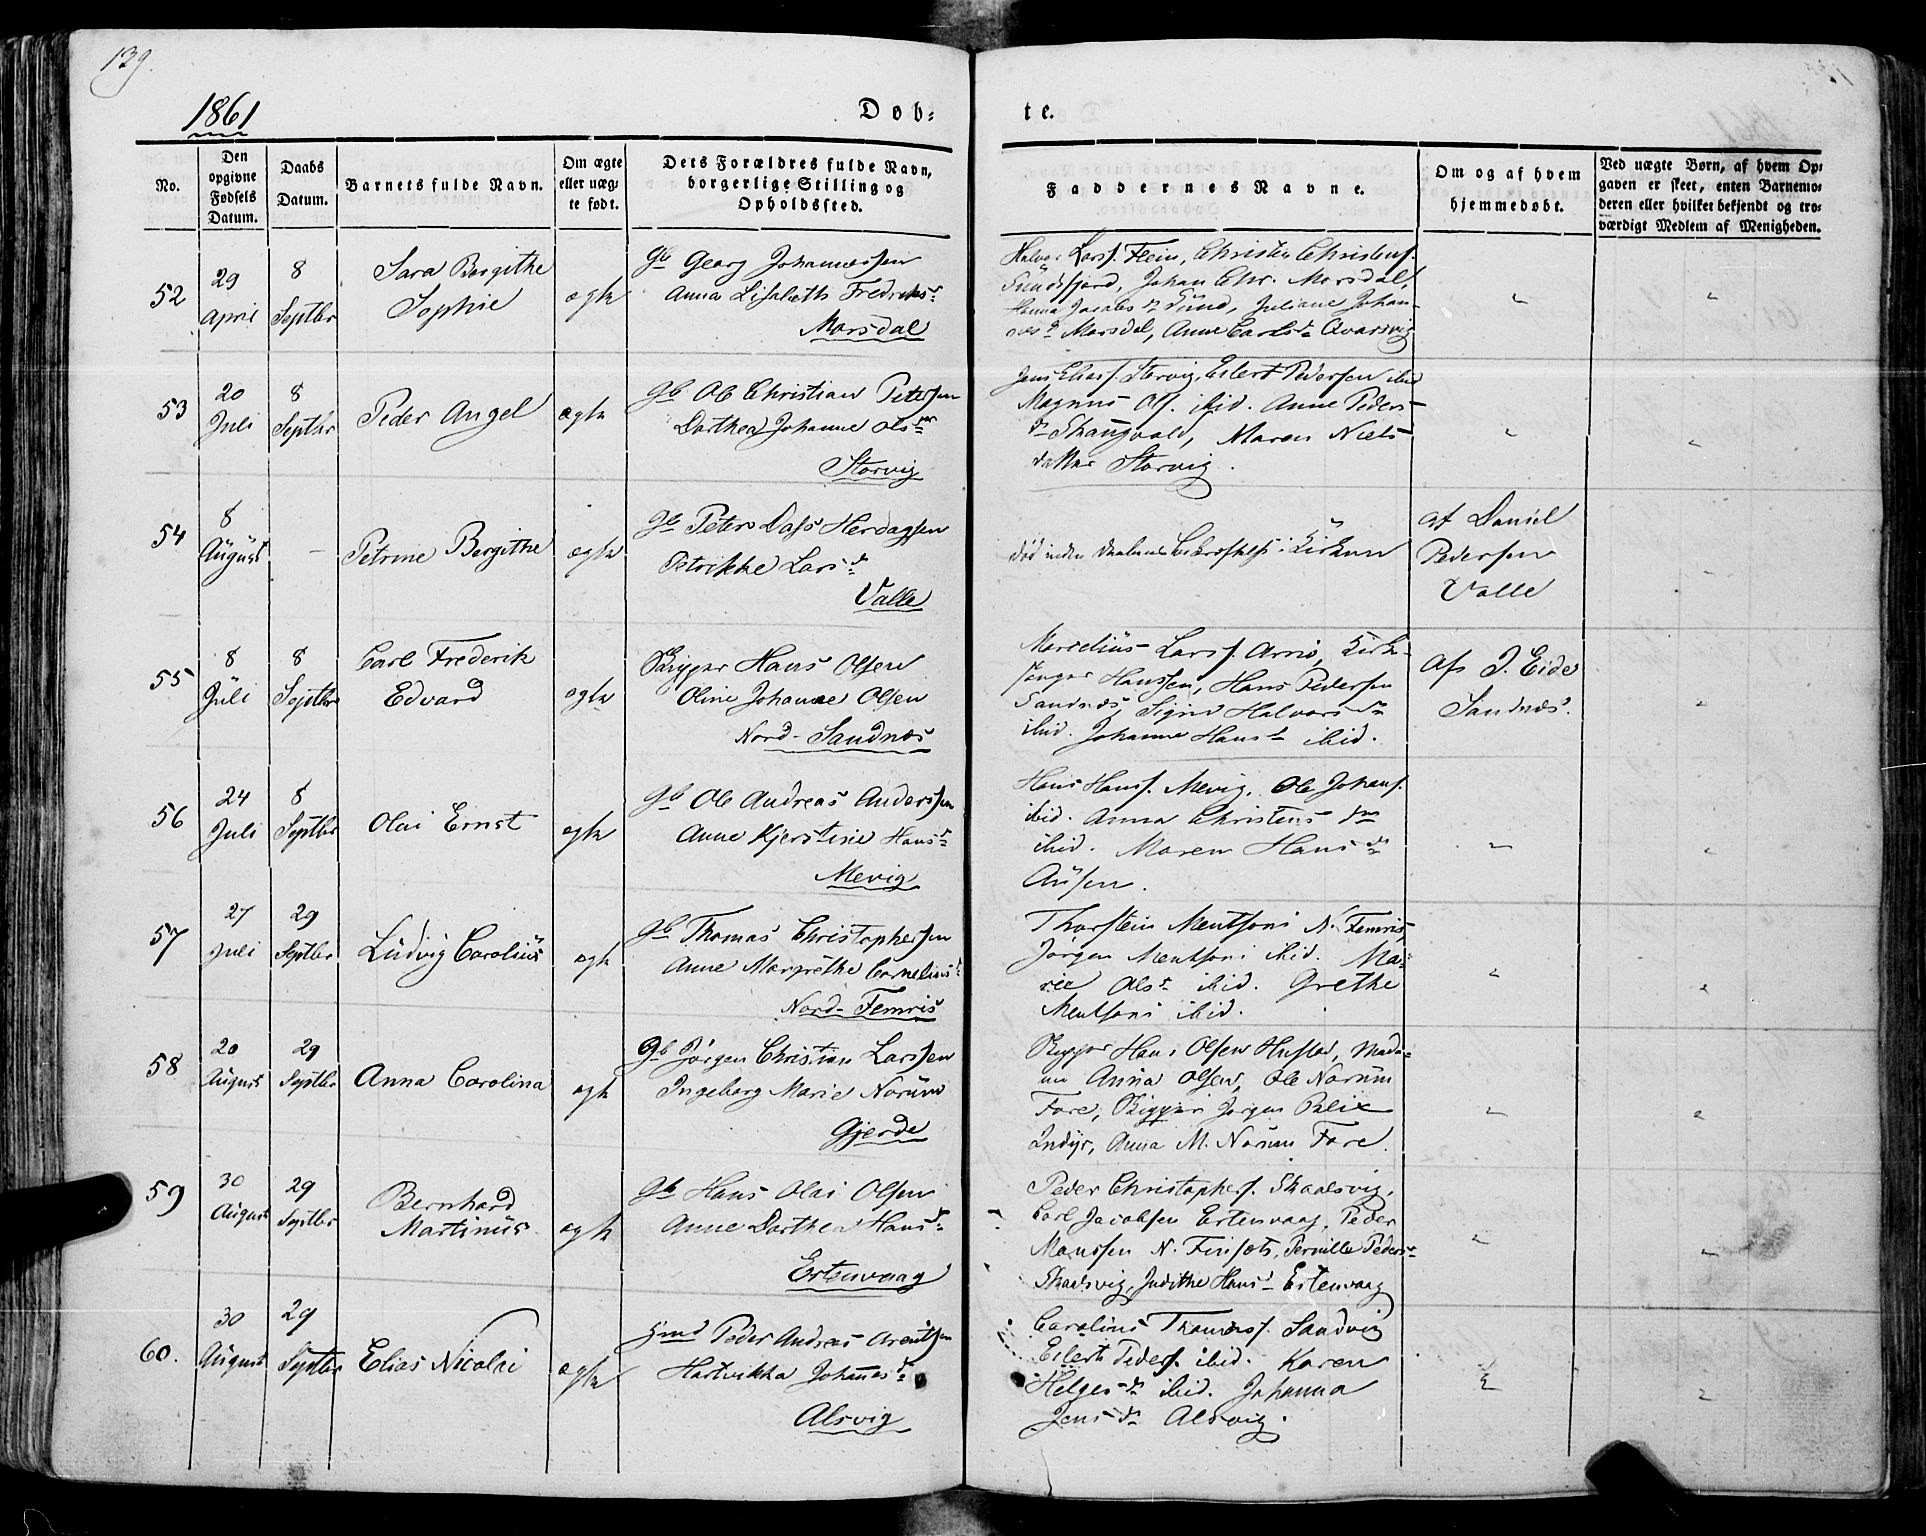 139.
1861
Døb-
te.
No.
Den opgivne Fødsels Datum.
Daabs Datum.
Barnets fulde Navn.
Om ægte eller uægte født.
Dets Forældres fulde Navn, borgerlige Stilling og Opholdssted.
Faddernes Navne.
Om og af hvem hjemmedøbt.
Ved uægte Børn, af hvem Opgaven er skeet, enten Barnemoderen eller hvilket bekjendt og troværdigt Medlem af Menigheden.
52
29 April
8 Septbr
Sara Bergithe
Sophie
ægte
Gb Georg Johannessen
Anna Lisabeth Fredriksd
Marsdal
Halvor Larss. Flein, Christen Christens.
Sundsfjord, Johan Chr. Marsdal,
Hanna Jacobsd Sund, Juliane Johan-
Marsdal, Anne Carlsd Qvarsvig
53
20 Juli
8 Septbr
Peder Angel
ægte
Gb Ole Christian Petersen
Dorthea Johanne Olsdtr
Storvig
Jens Eliass. Storvig, Eilert Pedersen ibid
Magnus Ols. ibid. Anne Peders-
d Skaugvold, Maren Niels
datter Storvig.
54
8 August
-
Petrine Bergithe
ægte
Gb Peter Dass Herdagsen
Petrikke Larsd
Valle
død inden Daabens Bekræftelse i Kirken
af Daniel
Pedersen
Valle
55
8 Juli
8 Septbr
Carl Frederik
Edvard
ægte
Skipper Hans Olsen
Oline Johanne Olsen
Nord-Sandnæs
Marcelius Larss. Arnø, Kirk-
sanger Hanssen, Hans Pedersen
Sandnæs, Signe Halvorsd
ibid. Johanne Hansd ibid.
af J. Eide
Sandnæs.
56
24 Juli
8 Septbr
Olai Ernst
ægte
Gb Ole Andreas Anderssen
Anne Kjerstine Hansd
Mevig
Hans Hanss. Mevig, Ole Johans.
ibid. Anna Christens d
ibid. Maren Hans d
Ausen.
57
27 Juli
29 Septbr
Ludvig Carolius
ægte
Gb Thomas Christophersen
Anne Margrethe Corneliusd
Nord-Femris
Thorstein Mentsoni N. Femris,
Jørgen Mentsoni ibid. Ma-
rie Olsd ibid. Grethe
Mentsoni ibid.
58
20 August
29 Septbr
Anna Carolina
ægte
Gb Jørgen Christian Larssen
Ingeborg Marie Norum
Gjerde
Skipper Hans Olsen Hustad, Mada-
me Anna Olsen, Ole Norum
Fore, Skipper Jørgen Blix
Indyr, Anna M. Norum Fore.
59
30 August
29 Septbr
Bernhard
Martinus
ægte
Gb Hans Olai Olsen
Anne Dorthea Hansd
Ertenvaag
Peder Christophers. Skaalsvig,
Carl Jacobsen Ertenvaag, Peder
Monssen N. Finsæt, Pernille Pedersd
Skaalsvig, Judithe Hansd Ertenvaag
60.
30 August
29 Septbr
Elias Nicolai
ægte
Hmd Peder Andreas Arentsen
Hartvikka Johannesd
Alsvig
Carolius Thomass. Sandvig
Eilert Peders. ibid. Karen
Helgesd ibid. Johanna
Jens d Alsvig.